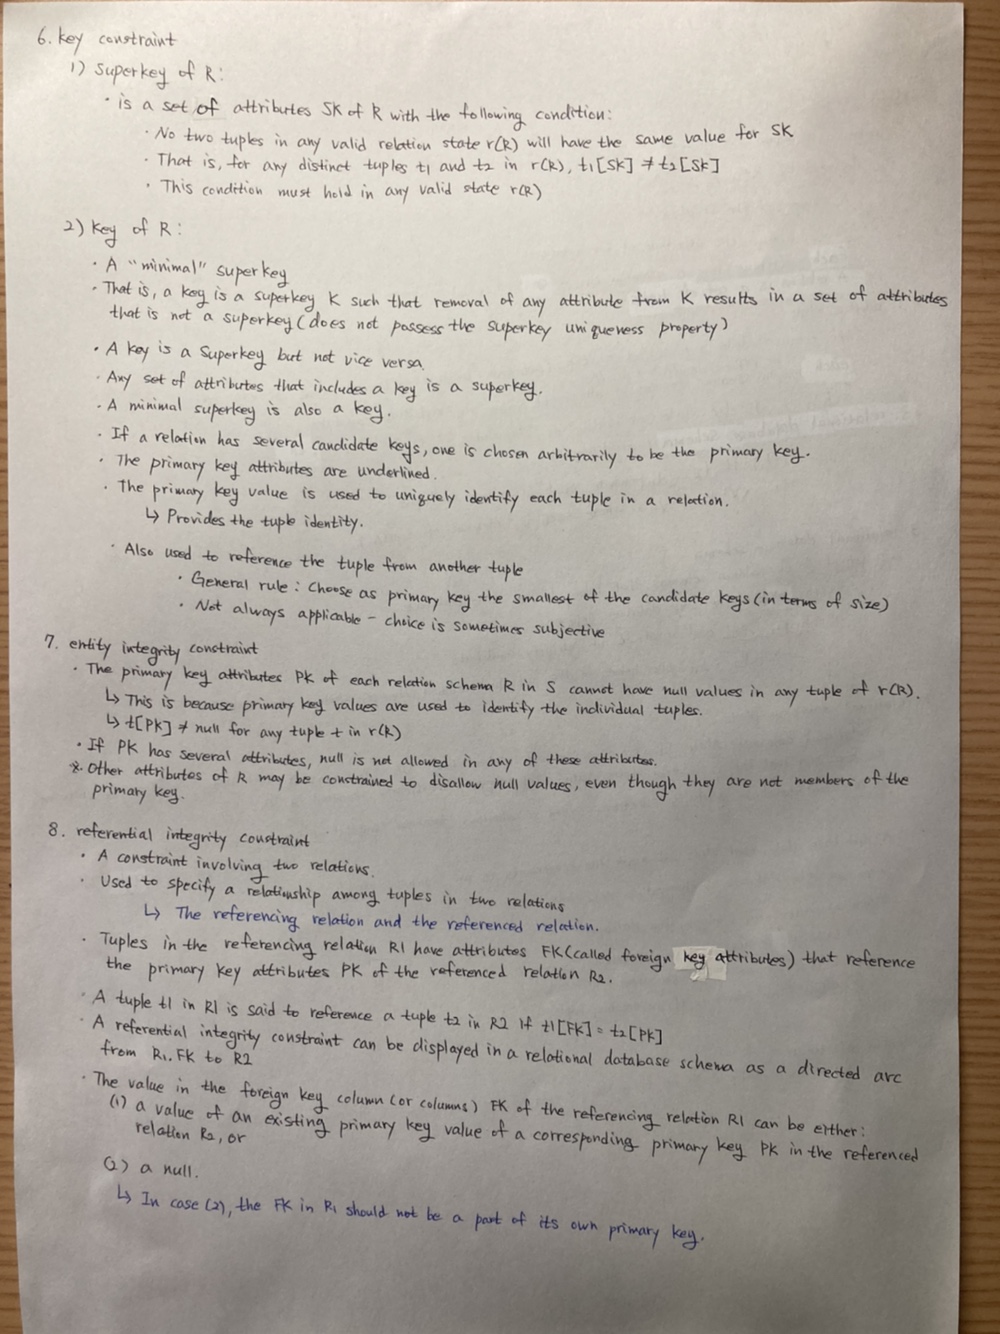 6. key constraint
1) Superkey of R:
· is a set of attributes SK of R with the following condition:
· No two tuples in any valid relation state r(R) will have the same value for SK
· That is, for any distinct tuples t1 and t2 in r(R), t1[SK] ≠ t2[SK]
· This condition must hold in any valid state r(R)
2) key of R:
· A "minimal" superkey
· That is, a key is a superkey K such that removal of any attribute from K results in a set of attributes
that is not a superkey (does not possess the superkey uniqueness property)
· A key is a Superkey but not vice versa.
· Any set of attributes that includes a key is a superkey.
· A minimal superkey is also a key.
· If a relation has several candidate keys, one is chosen arbitrarily to be the primary key.
· The primary key attributes are underlined.
· The primary key value is used to uniquely identify each tuple in a relation.
↳ Provides the tuple identity.
· Also used to reference the tuple from another tuple
· General rule: Choose as primary key the smallest of the candidate keys (in terms of size)
· Not always applicable - choice is sometimes subjective
7. entity integrity constraint
· The primary key attributes PK of each relation schema R in S cannot have null values in any tuple of r(R).
↳ This is because primary key values are used to identify the individual tuples.
↳ t[PK] ≠ null for any tuple t in r(R)
· If PK has several attributes, null is not allowed in any of these attributes.
※ Other attributes of R may be constrained to disallow null values, even though they are not members of the
primary key.
8. referential integrity constraint
· A constraint involving two relations.
· Used to specify a relationship among tuples in two relations
↳ The referencing relation and the referenced relation.
· Tuples in the referencing relation R1 have attributes FK (called foreign key attributes) that reference
the primary key attributes PK of the referenced relation R2.
· A tuple t1 in R1 is said to reference a tuple t2 in R2 if t1[FK] = t2[PK]
· A referential integrity constraint can be displayed in a relational database schema as a directed arc
from R1.FK to R2
· The value in the foreign key column (or columns) FK of the referencing relation R1 can be either:
(1) a value of an existing primary key value of a corresponding primary key PK in the referenced
relation R2, or
(2) a null.
↳ In case (2), the FK in R1 should not be a part of its own primary key.